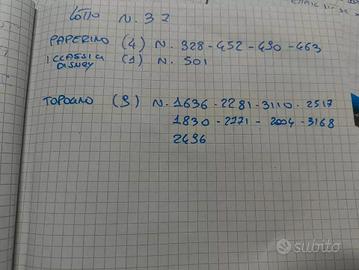 LOTTO N. 37
PAPERINO (4) N. 328 - 452 - 490 - 463
I CLASSICI DISNEY (1) N. 501
TOPOLINO (9) N. 1636 - 2281 - 3110 - 2517
1830 - 2771 - 2004 - 3168
2496
subito